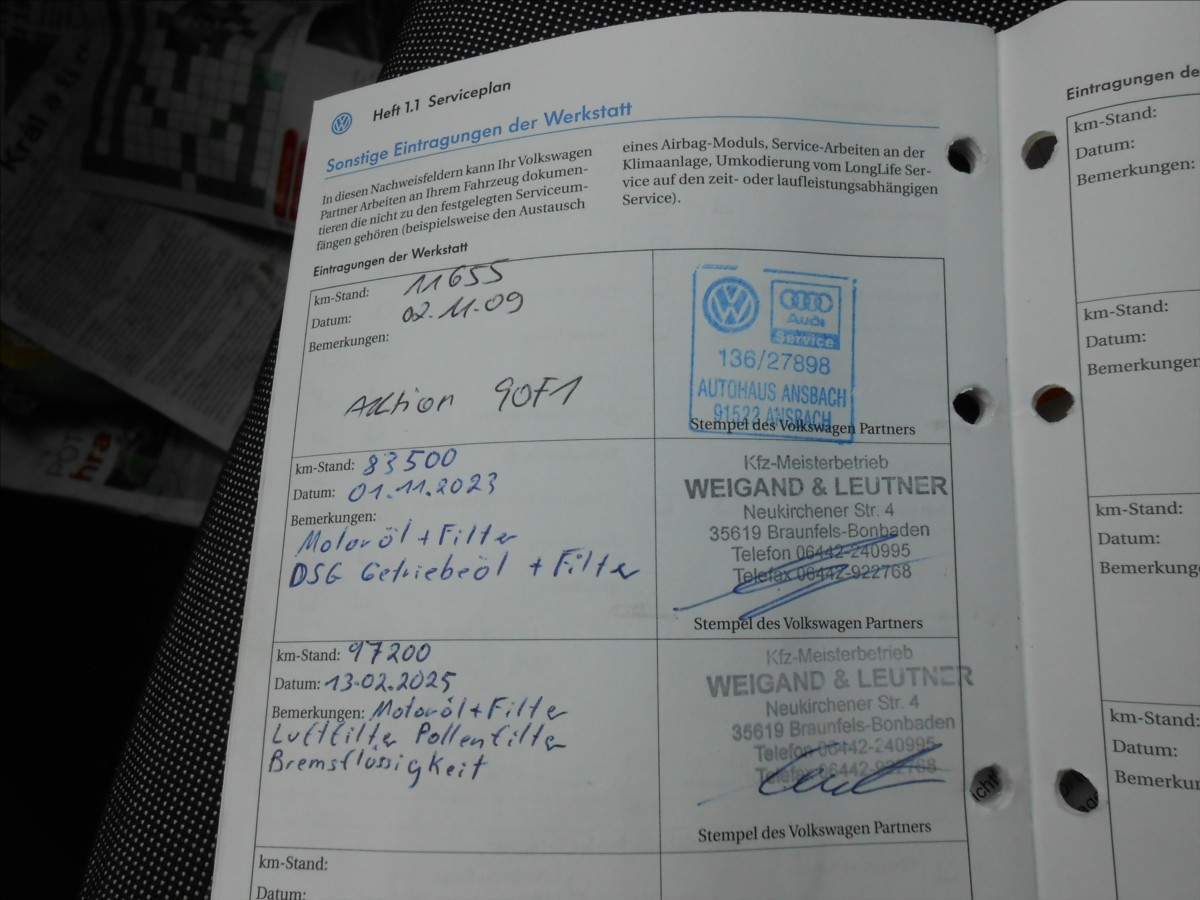 Heft 1.1 Serviceplan
Sonstige Eintragungen der Werkstatt
In diesen Nachweisfeldern kann Ihr Volkswagen
Partner Arbeiten an Ihrem Fahrzeug dokumen-
tieren die nicht zu den festgelegten Serviceum-
fängen gehören (beispielsweise den Austausch
eines Airbag-Moduls, Service-Arbeiten an der
Klimaanlage, Umkodierung vom LongLife Ser-
vice auf den zeit- oder laufleistungsabhängigen
Service).
Eintragungen der Werkstatt
km-Stand: 11655
Datum: 02.11.09
Bemerkungen:
Aktion 90F1
Audi
Service
136/27898
AUTOHAUS ANSBACH
91522 ANSBACH
Stempel des Volkswagen Partners
km-Stand: 83500
Datum: 01.11.2023
Bemerkungen:
Motoröl + Filter
DSG Getriebeöl + Filter
Kfz-Meisterbetrieb
WEIGAND & LEUTNER
Neukirchener Str. 4
35619 Braunfels-Bonbaden
Telefon 06442-240995
Telefax 06442-922768
Stempel des Volkswagen Partners
km-Stand: 97200
Datum: 13.02.2025
Bemerkungen: Motoröl + Filter
Luftfilter Pollenfilter
Bremsflüssigkeit
Kfz-Meisterbetrieb
WEIGAND & LEUTNER
Neukirchener Str. 4
35619 Braunfels-Bonbaden
Telefon 06442-240995
Telefax 06442-922768
Stempel des Volkswagen Partners
km-Stand:
Datum:
Eintragungen de
km-Stand:
Datum:
Bemerkungen:
km-Stand:
Datum:
Bemerkungen
km-Stand:
Datum:
Bemerkung
km-Stand:
Datum:
Bemerku